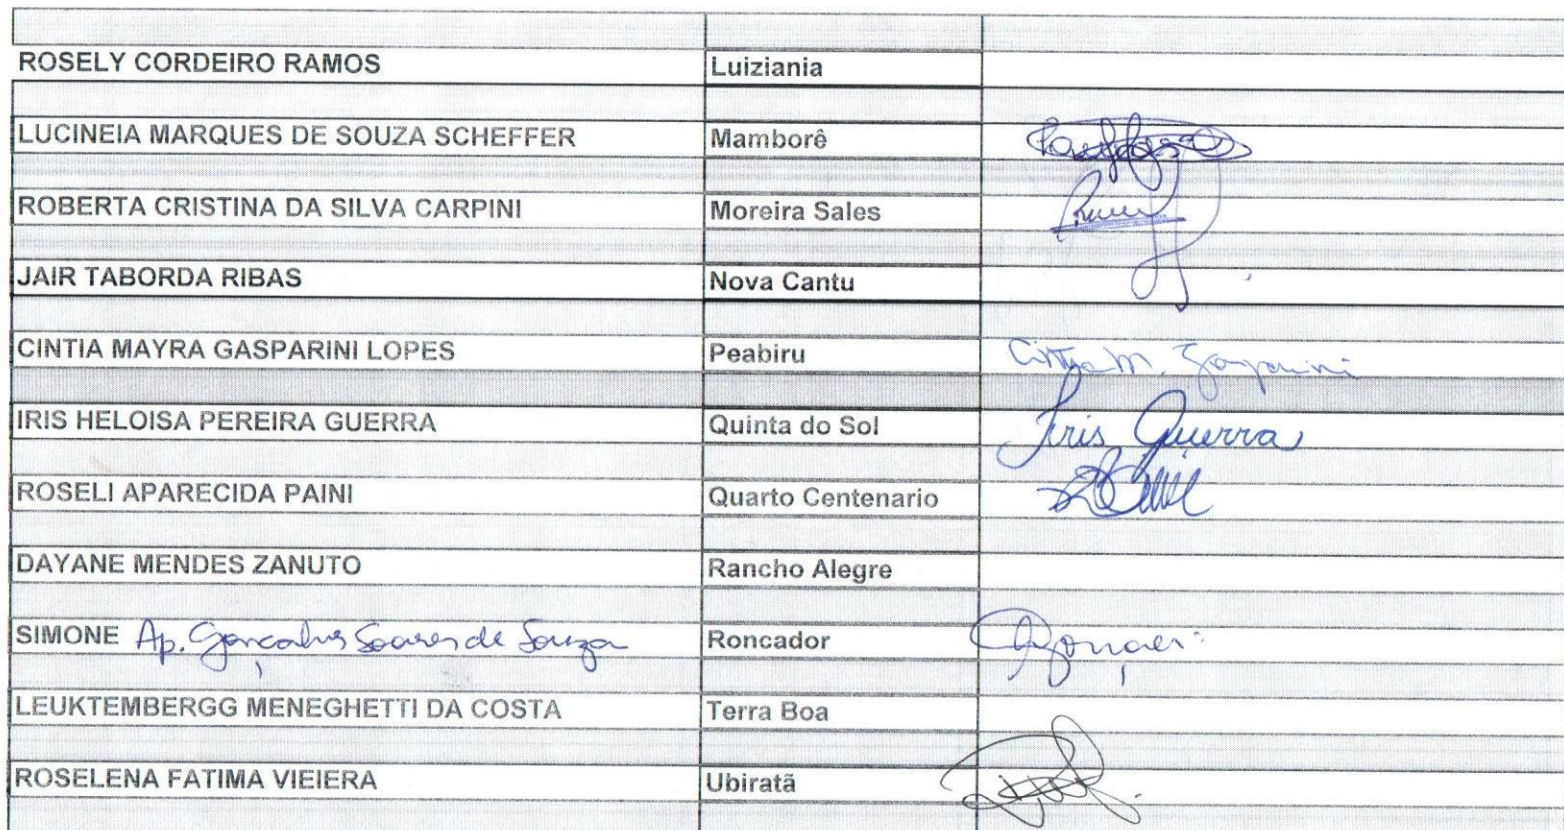 ROSELY CORDEIRO RAMOS Luiziania
LUCINEIA MARQUES DE SOUZA SCHEFFER Mamborê
ROBERTA CRISTINA DA SILVA CARPINI Moreira Sales
JAIR TABORDA RIBAS Nova Cantu
CINTIA MAYRA GASPARINI LOPES Peabiru Cintia M. Gasparini
IRIS HELOISA PEREIRA GUERRA Quinta do Sol Iris Guerra
ROSELI APARECIDA PAINI Quarto Centenario
DAYANE MENDES ZANUTO Rancho Alegre
SIMONE Ap. Gonçalves Soares de Souza Roncador
LEUKTEMBERGG MENEGHETTI DA COSTA Terra Boa
ROSELENA FATIMA VIEIERA Ubiratã